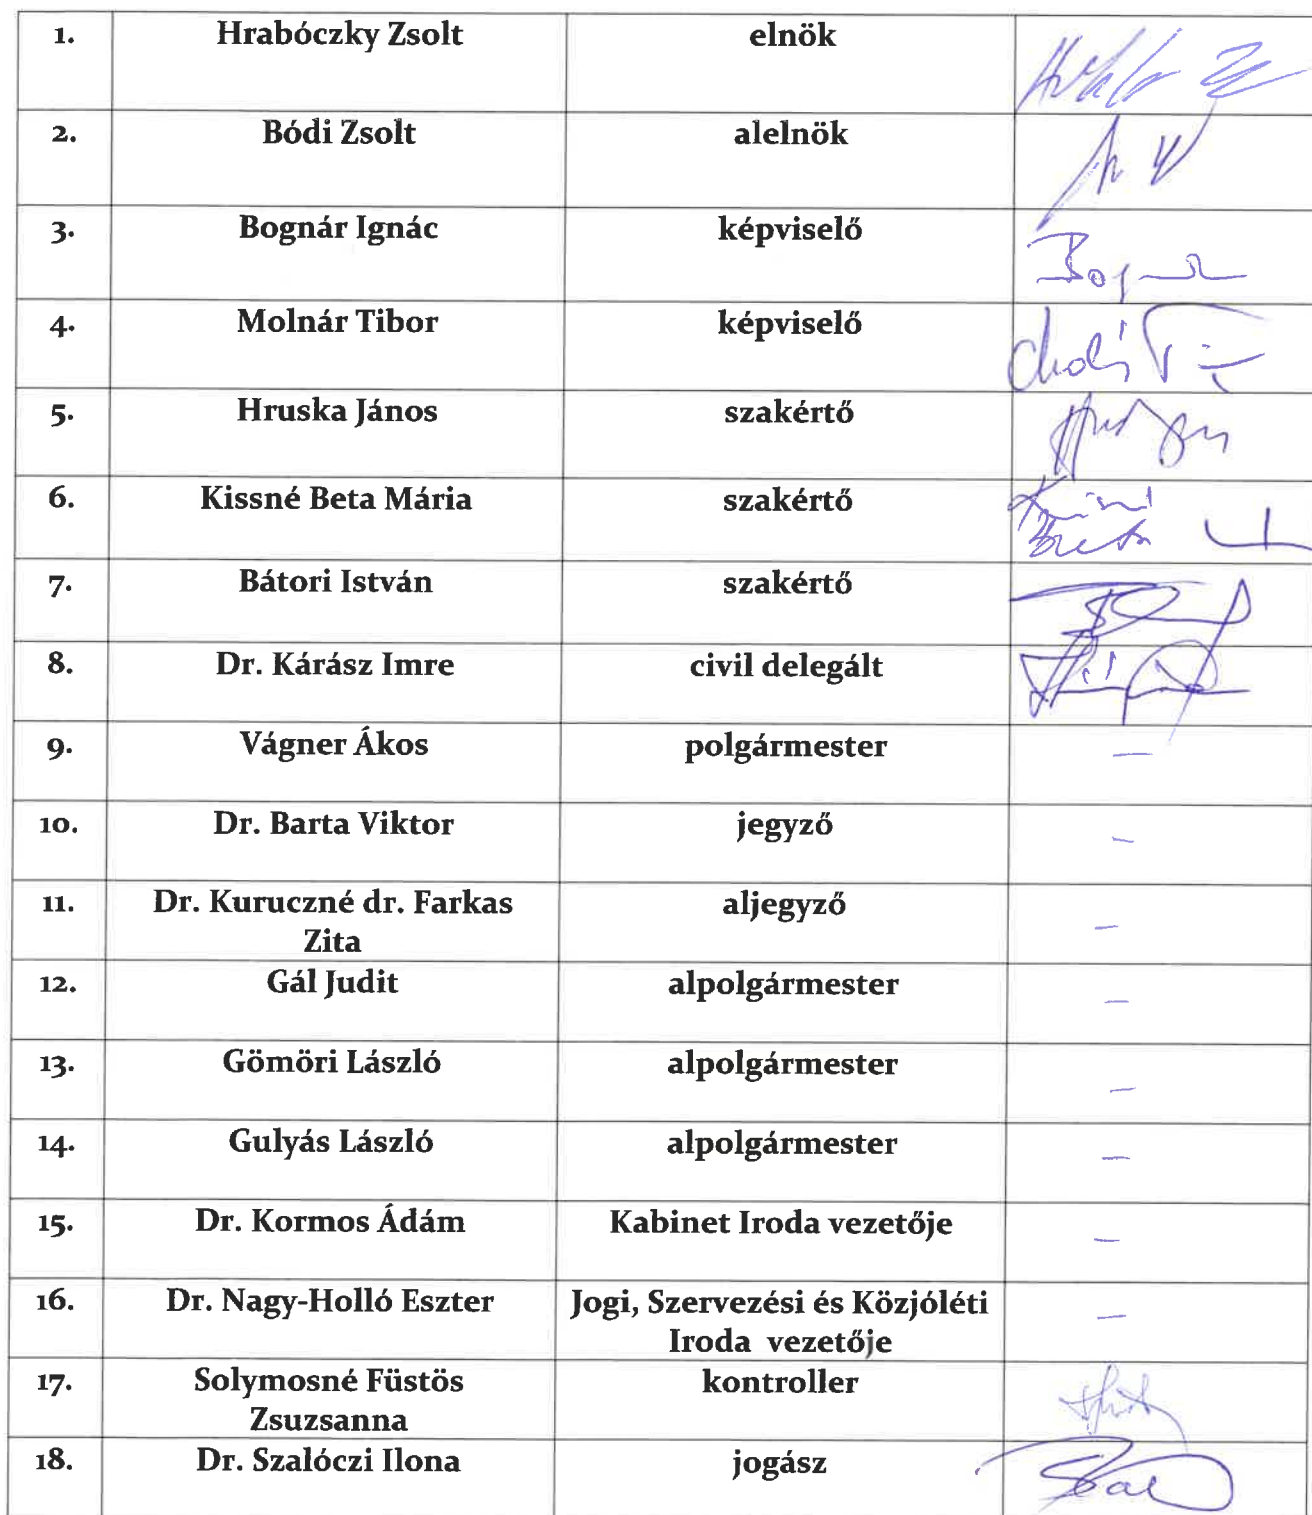 1. Hrabóczky Zsolt elnök
2. Bódi Zsolt alelnök
3. Bognár Ignác képviselő
4. Molnár Tibor képviselő
5. Hruska János szakértő
6. Kissné Beta Mária szakértő
7. Bátori István szakértő
8. Dr. Kárász Imre civil delegált
9. Vágner Ákos polgármester –
10. Dr. Barta Viktor jegyző –
11. Dr. Kuruczné dr. Farkas aljegyző –
Zita
12. Gál Judit alpolgármester –
13. Gömöri László alpolgármester –
14. Gulyás László alpolgármester –
15. Dr. Kormos Ádám Kabinet Iroda vezetője –
16. Dr. Nagy-Holló Eszter Jogi, Szervezési és Közjóléti –
Iroda vezetője
17. Solymosné Füstös kontroller
Zsuzsanna
18. Dr. Szalóczi Ilona jogász